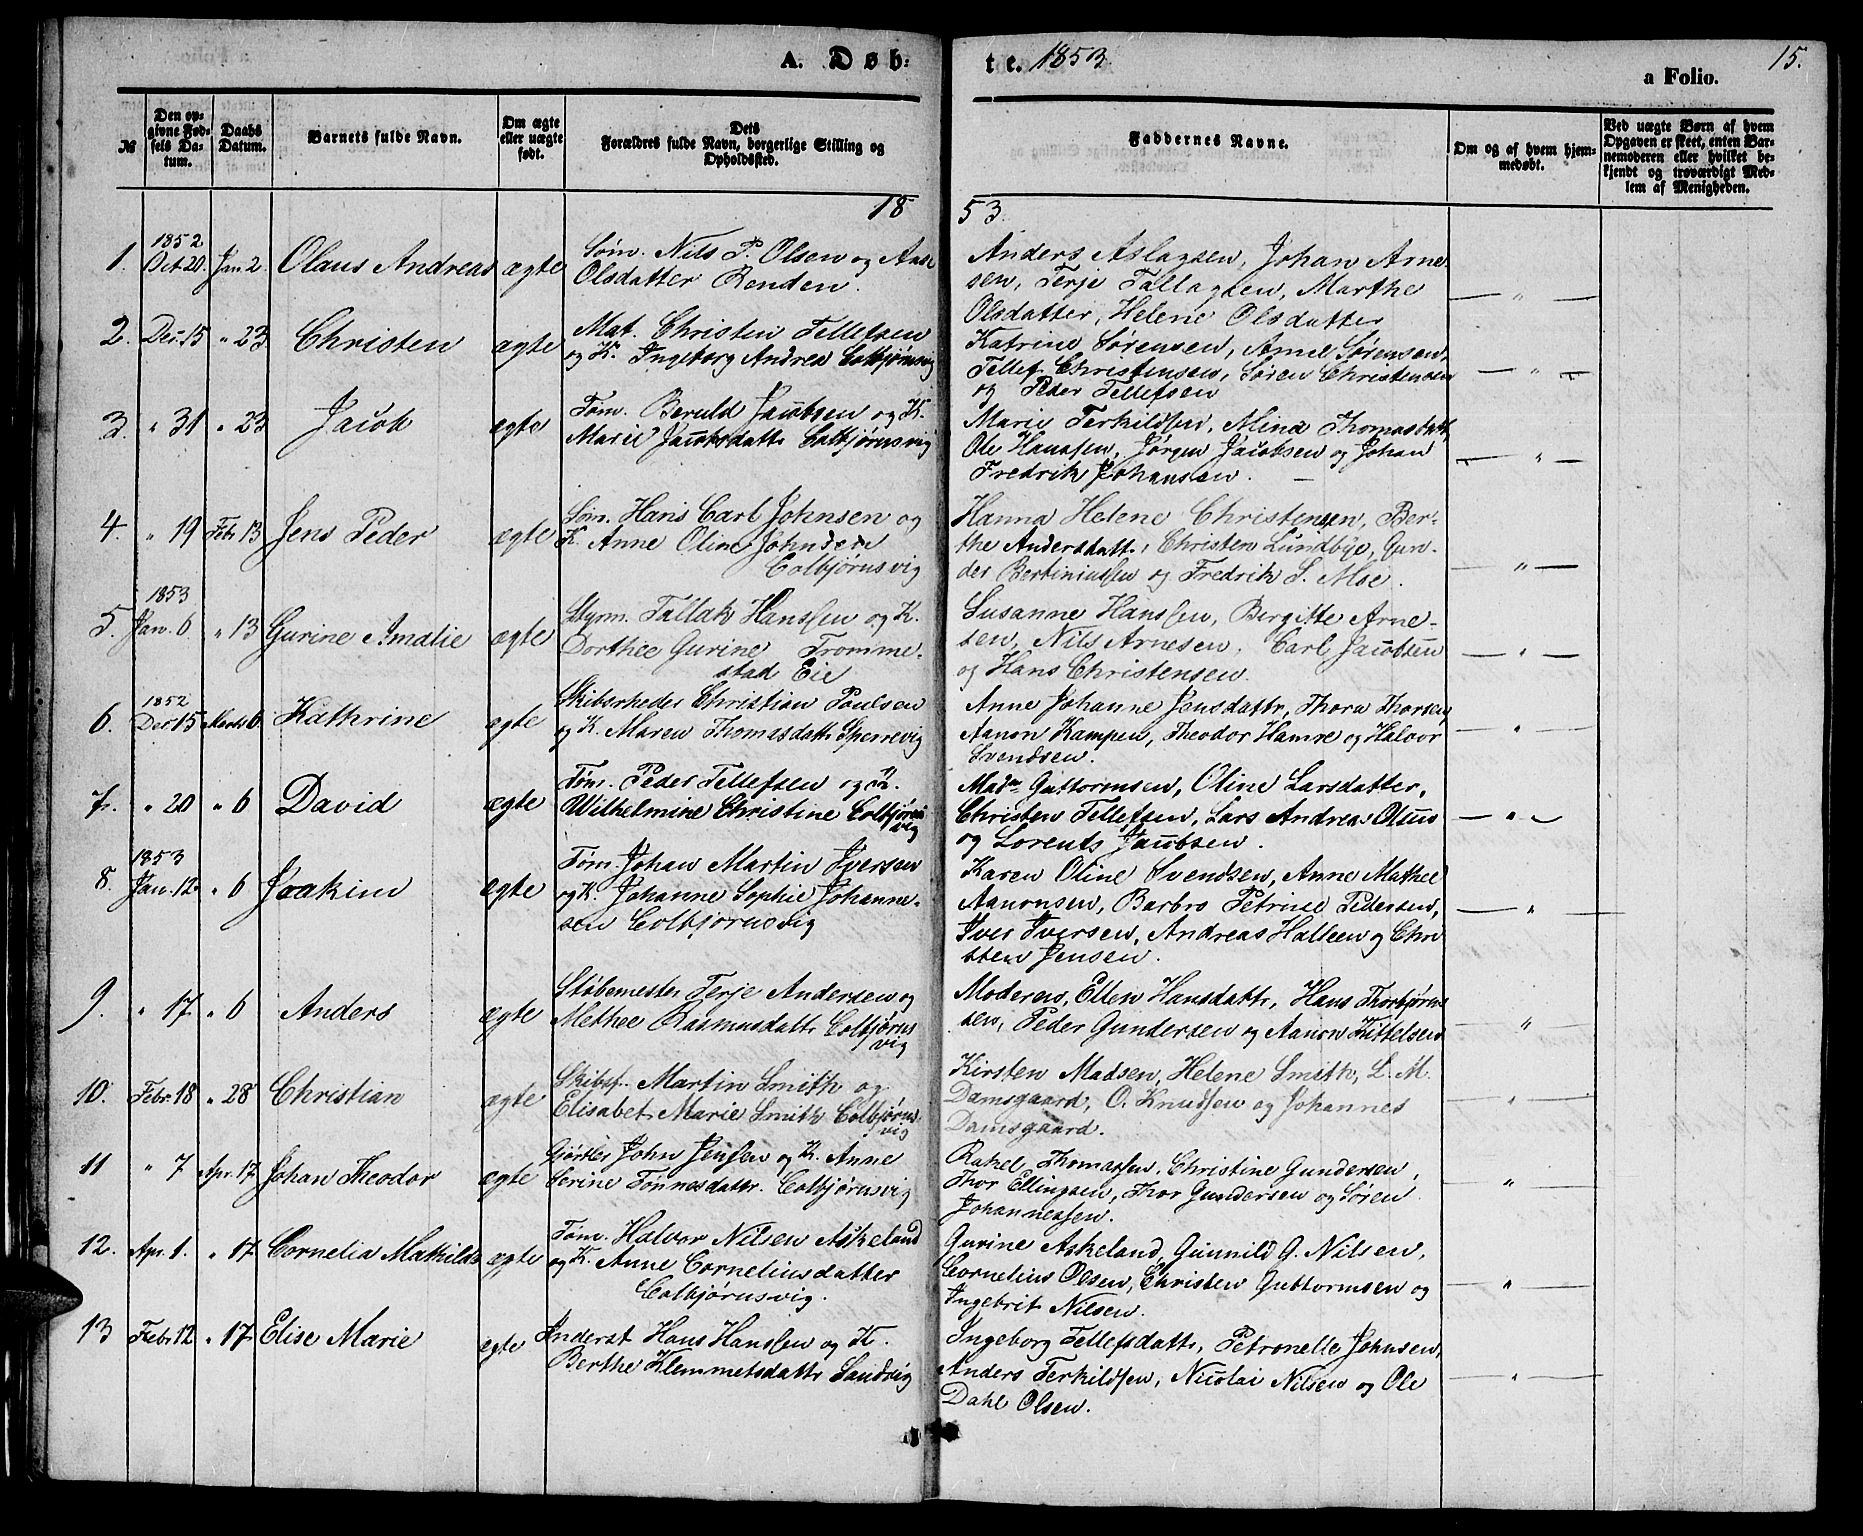 A. Døb:
te. 1853.
a Folio. 15.
№
Den opgivne Fødsels Datum.
Daabs Datum.
Barnets fulde Navn.
Om ægte eller uægte født.
Dets Forældres fulde Navn, borgerlige Stilling og Opholdssted.
Faddernes Navne.
Om og af hvem hjemmedøbt.
Ved uægte Børn af hvem Opgaven er skeet, enten Barnemoderen eller hvilket bekjendt og troværdigt Medlem af Menigheden.
18
53.
1. 1852 Oct 20. Jan. 2. Olaus Andreas ægte
Søm. Nils P. Olsen og Anne
Olsdatter Renden.
Anders Aslagsen, Johan Arne-
sen, Terje Tallagsen, Marthe
Olsdatter, Helene Olsdatter
— " —
2. Dec. 15 " 23 Christen ægte
Mat. Christen Tellefsen
og K. Ingeborg Andrea Colbjørnsvig
Katrine Sørensen, Anne Sørensen,
Tellef Christensen, Søren Christensen
og Peder Tellefsen
— " —
3. " 31 " 23 Jacob ægte
Tøm. Beruld Jacobsen og K.
Marie Jacobsdattr Colbjørnsvig
Marie Terkildsen, Mina Thomasdatt,
Ole Hanssen, Jørgen Jacobsen og Johan
Fredrik Johansen. —
— " —
4. " 19 Febr 13 Jens Peder ægte
Søm. Hans Carl Johnsen og
K. Anne Oline Johnsen
Colbjørnsvig
Hanna Helene Christensen, Ber-
the Andersdattr, Christen Lundbye, Gun-
der Bertiniussen og Fredrik S. Moe.
— " —
5. 1853 Jan. 6 " 13 Gurine Amalie ægte
Styrm. Tallak Hanssen og K.
Dorthee Gurine Tromme-
stad Eie
Susanne Hanssen, Bergitte Arne-
sen, Nils Arnesen, Carl Jacobsen
og Hans Christensen.
— " —
6. 1852 Dec 15 Marts 6 Kathrine ægte
Skibsrheder Christian Poulsen
og K. Maren Thomasdattr Sperrevig
Anne Johanne Jensdattr, Thora Thorsen,
Aanon Kampen, Theodor Hamre og Halvor
Svendsen.
— " —
7. " 20 " 6 David ægte
Tøm. Peder Tellefsen og K.
Wilhelmine Christine Colbjørns
vig
Madm Guttormsen, Oline Larsdatter,
Christen Tellefsen, Lars Andreas Olsen
og Lorents Jacobsen.
— " —
8. 1853 Jan. 12. " 6 Joakim ægte
Tøm. Johan Martin Iversen
og K. Johanne Sophie Johanne-
sen Colbjørnsvig
Karen Oline Svendsen, Anne Mathee
Aanonsen, Barbro Petrine Pedersen,
Iver Iversen, Andreas Halleen og Chri
sten Jensen.
— " —
9. " 17 " 6 Anders ægte
Støbemester Terje Andersen og
Methee Rasmusdattr Colbjørns
vig
Moderen, Ellen Hansdattr, Hans Thorbjørn
sen, Peder Gundersen og Aanon Kittelsen
— " —
10. Febr. 18 " 28 Christian ægte
Skibsf. Martin Smith og
Elisabet Marie Smith Colbjørns
vig
Kirsten Madsen, Helene Smith, L. M.
Damsgaard, O. Knudsen og Johannes
Damsgaard.
— " —
11 " 7 Apr. 17 Johan Theodor ægte
Gjørtler John Jensen og K. Anne
Serine Tønnesdattr. Colbjørnsvig
Rakel Thomassen, Christine Gundersen,
Thor Ellingsen, Thor Gundersen og Søren
Johannessen.
— " —
12. Apr. 1. " 17 Cornelia Mathilde ægte
Tøm. Halvor Nilsen Askeland
og K. Anne Corneliusdatter
Colbjørnsvig.
Gurine Askeland, Gunnild G. Nilsen,
Cornelius Olsen, Christen Guttormsen og
Ingebrit Nilsen.
— " —
13 Febr 12 " 17 Elise Marie ægte
Inderst Hans Hanssen og K.
Berthe Klemmetsdattr Sandvig
Ingeborg Tellefsdattr, Petronelle Johnsen,
Anders Terkildsen, Nicolai Nilsen og Ole
Dahl Olsen.
— " —